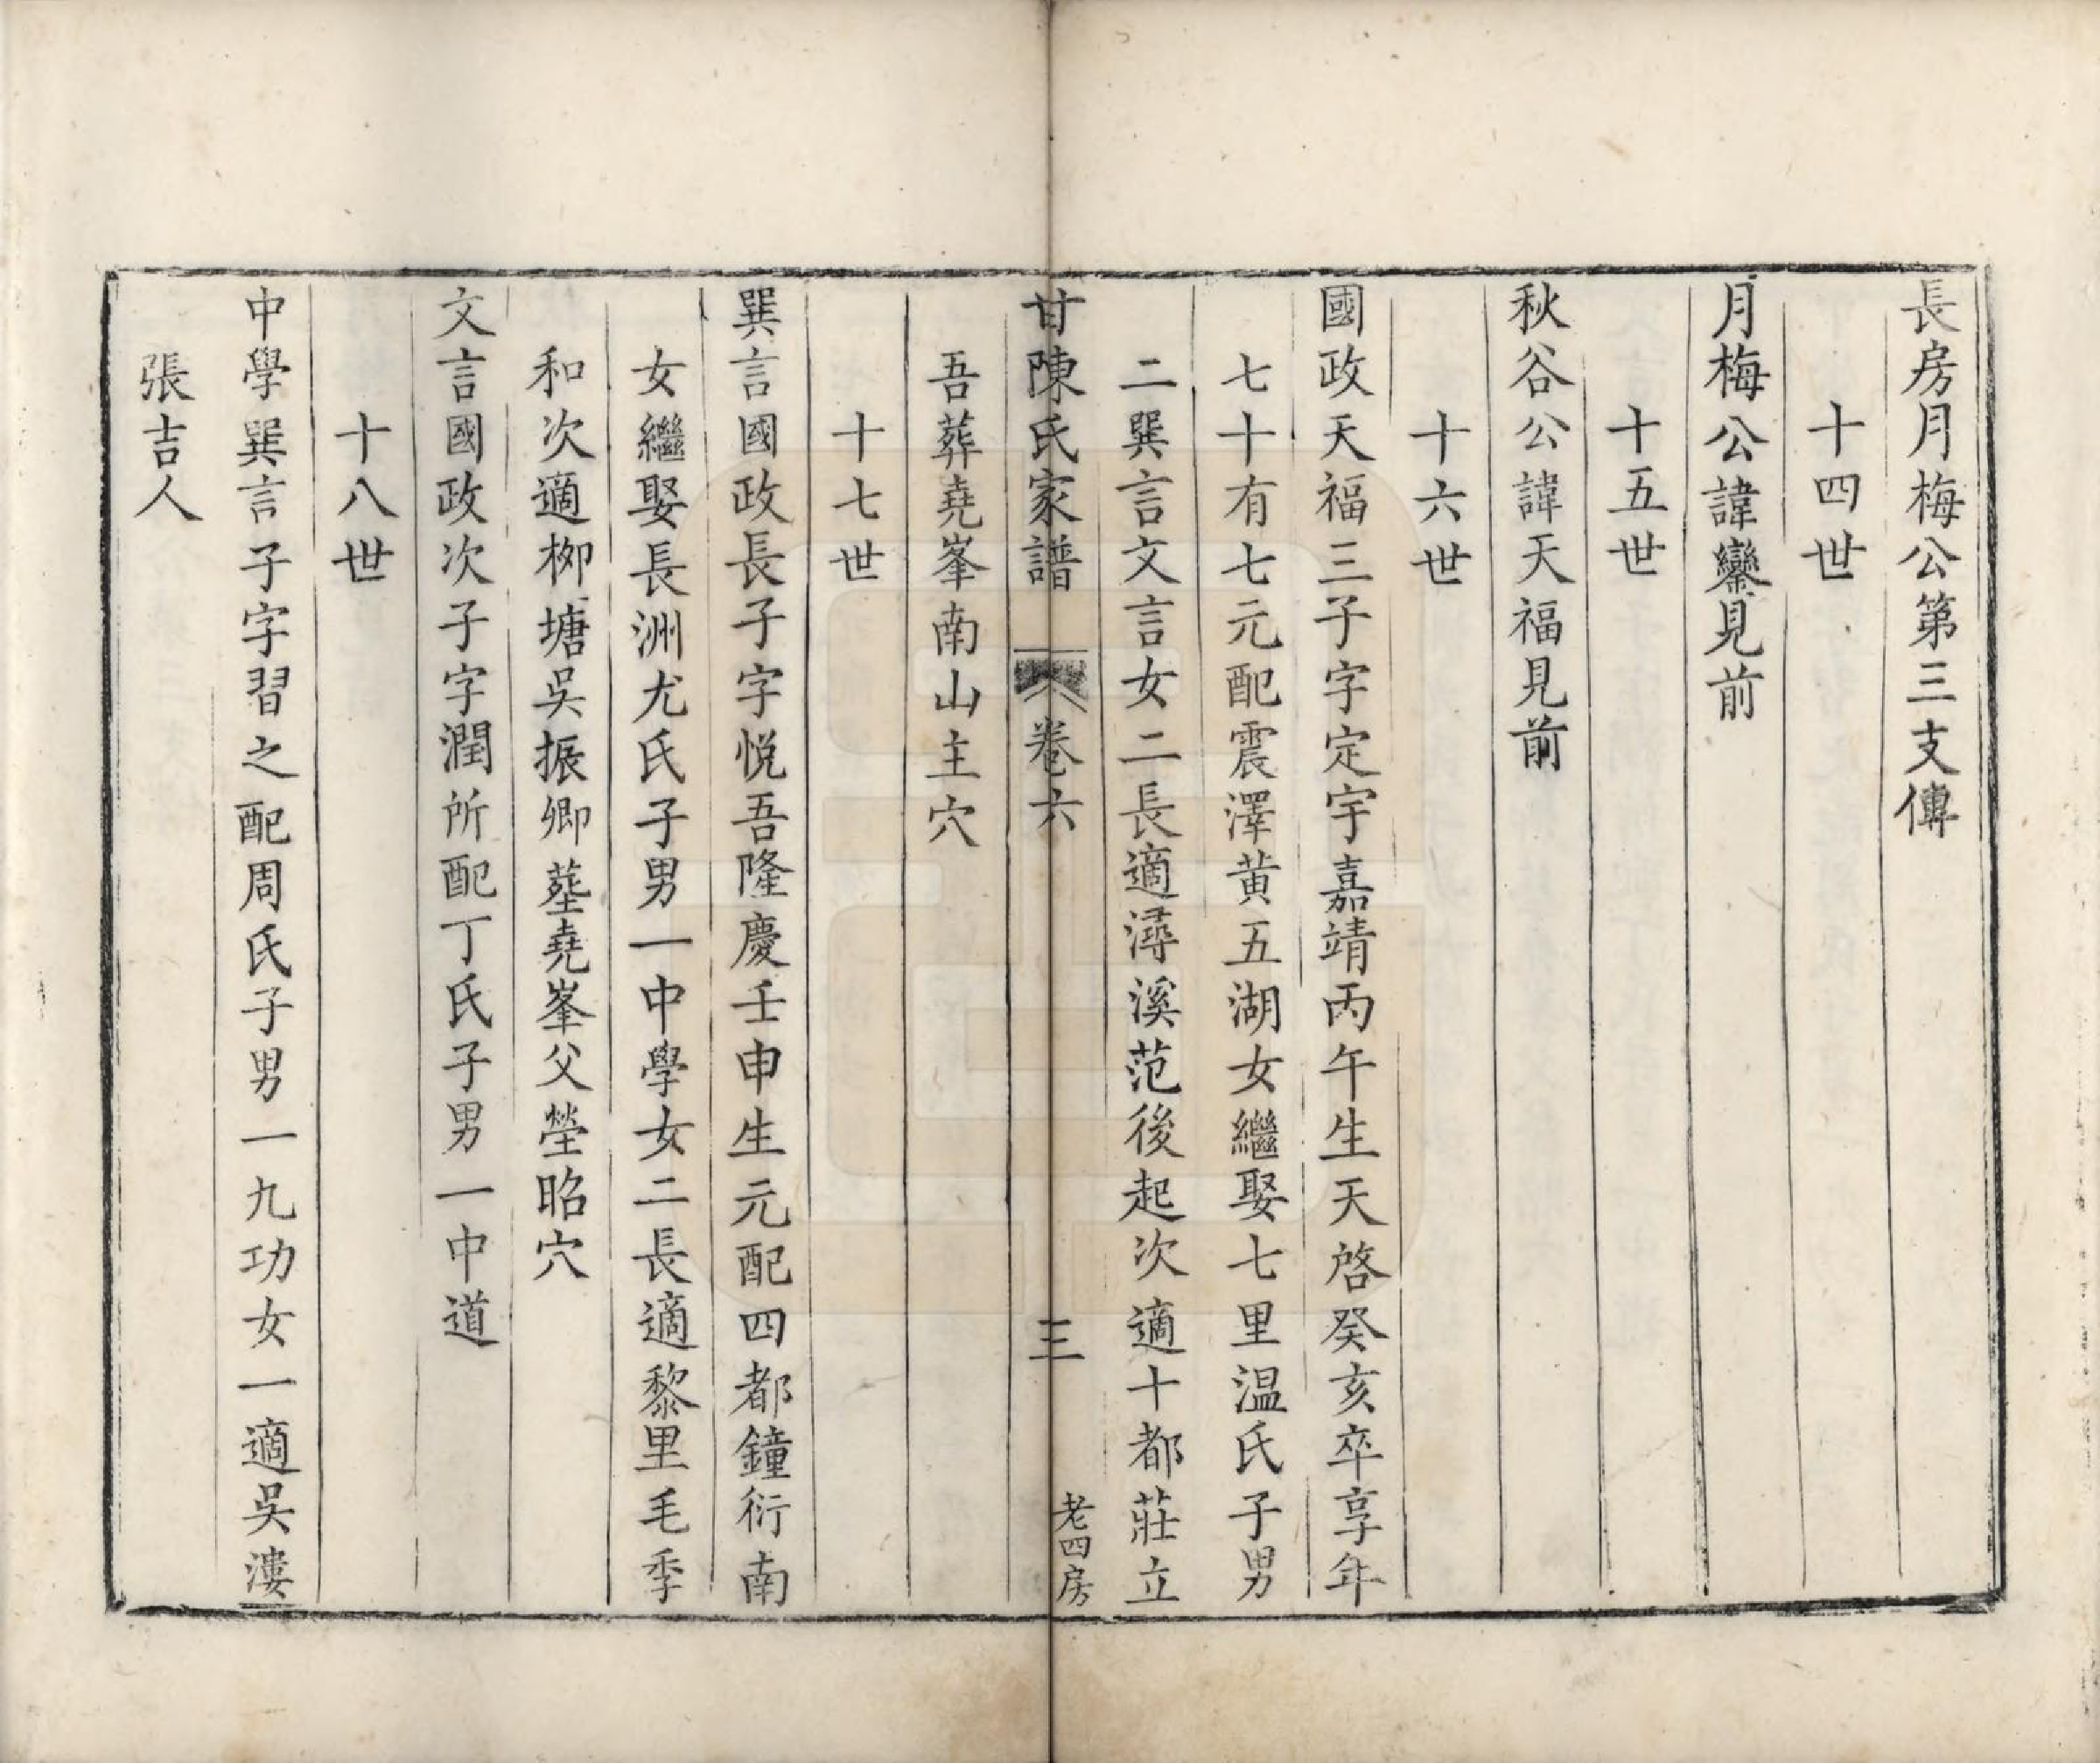 長房月梅公第三支傳
十四世
月梅公諱鑾見前
十五世
秋谷公諱天福見前
十六世
國政天福三子字定宇嘉靖丙午生天啓癸亥卒享年
七十有七元配震澤黄五湖女繼娶七里温氏子男
二巽言文言女二長適潯溪范後起次適十都莊立
甘陳氏家譜 卷六 三 老四房
吾葬堯峯南山主穴
十七世
巽言國政長子字悦吾隆慶壬申生元配四都鐘衍南
女繼娶長洲尤氏子男一中學女二長適黎里毛季
和次適栁塘吳振卿塟堯峯父塋昭穴
文言國政次子字潤所配丁氏子男一中道
十八世
中學巽言子字習之配周氏子男一九功女一適吳漊
張吉人